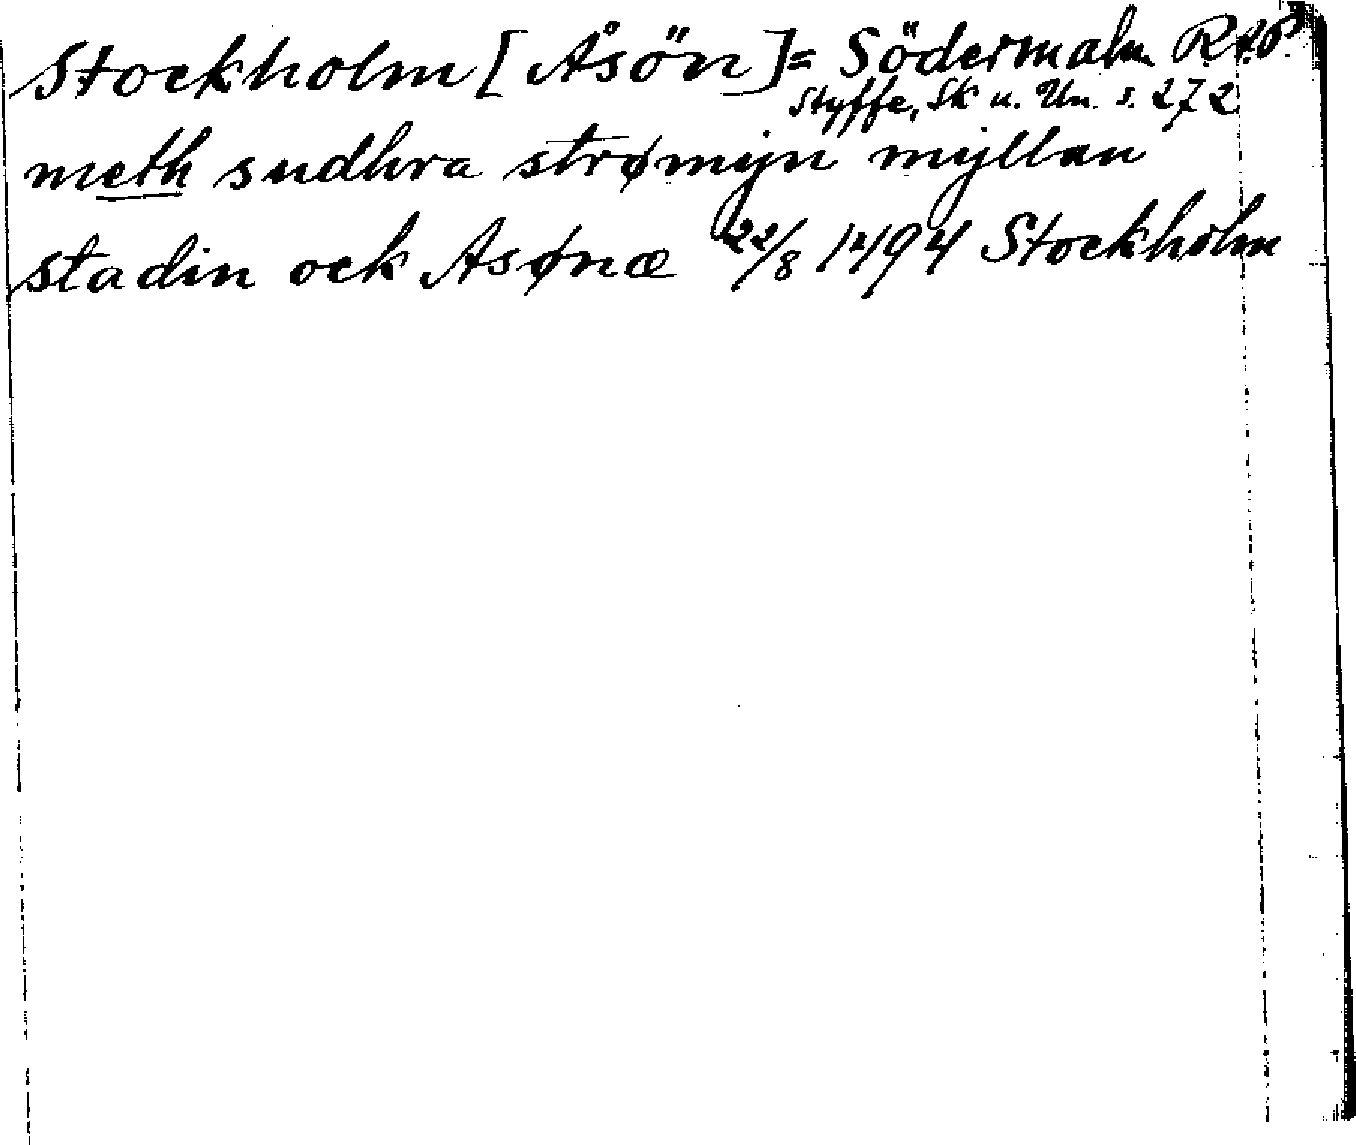 Stockholm [Åsön] = Södermalm RAP
Styffe, Sk u. Un. s. 272
meth sudhra strømyn myllan
stadin ock Asønæ 22/8 1494 Stockholm